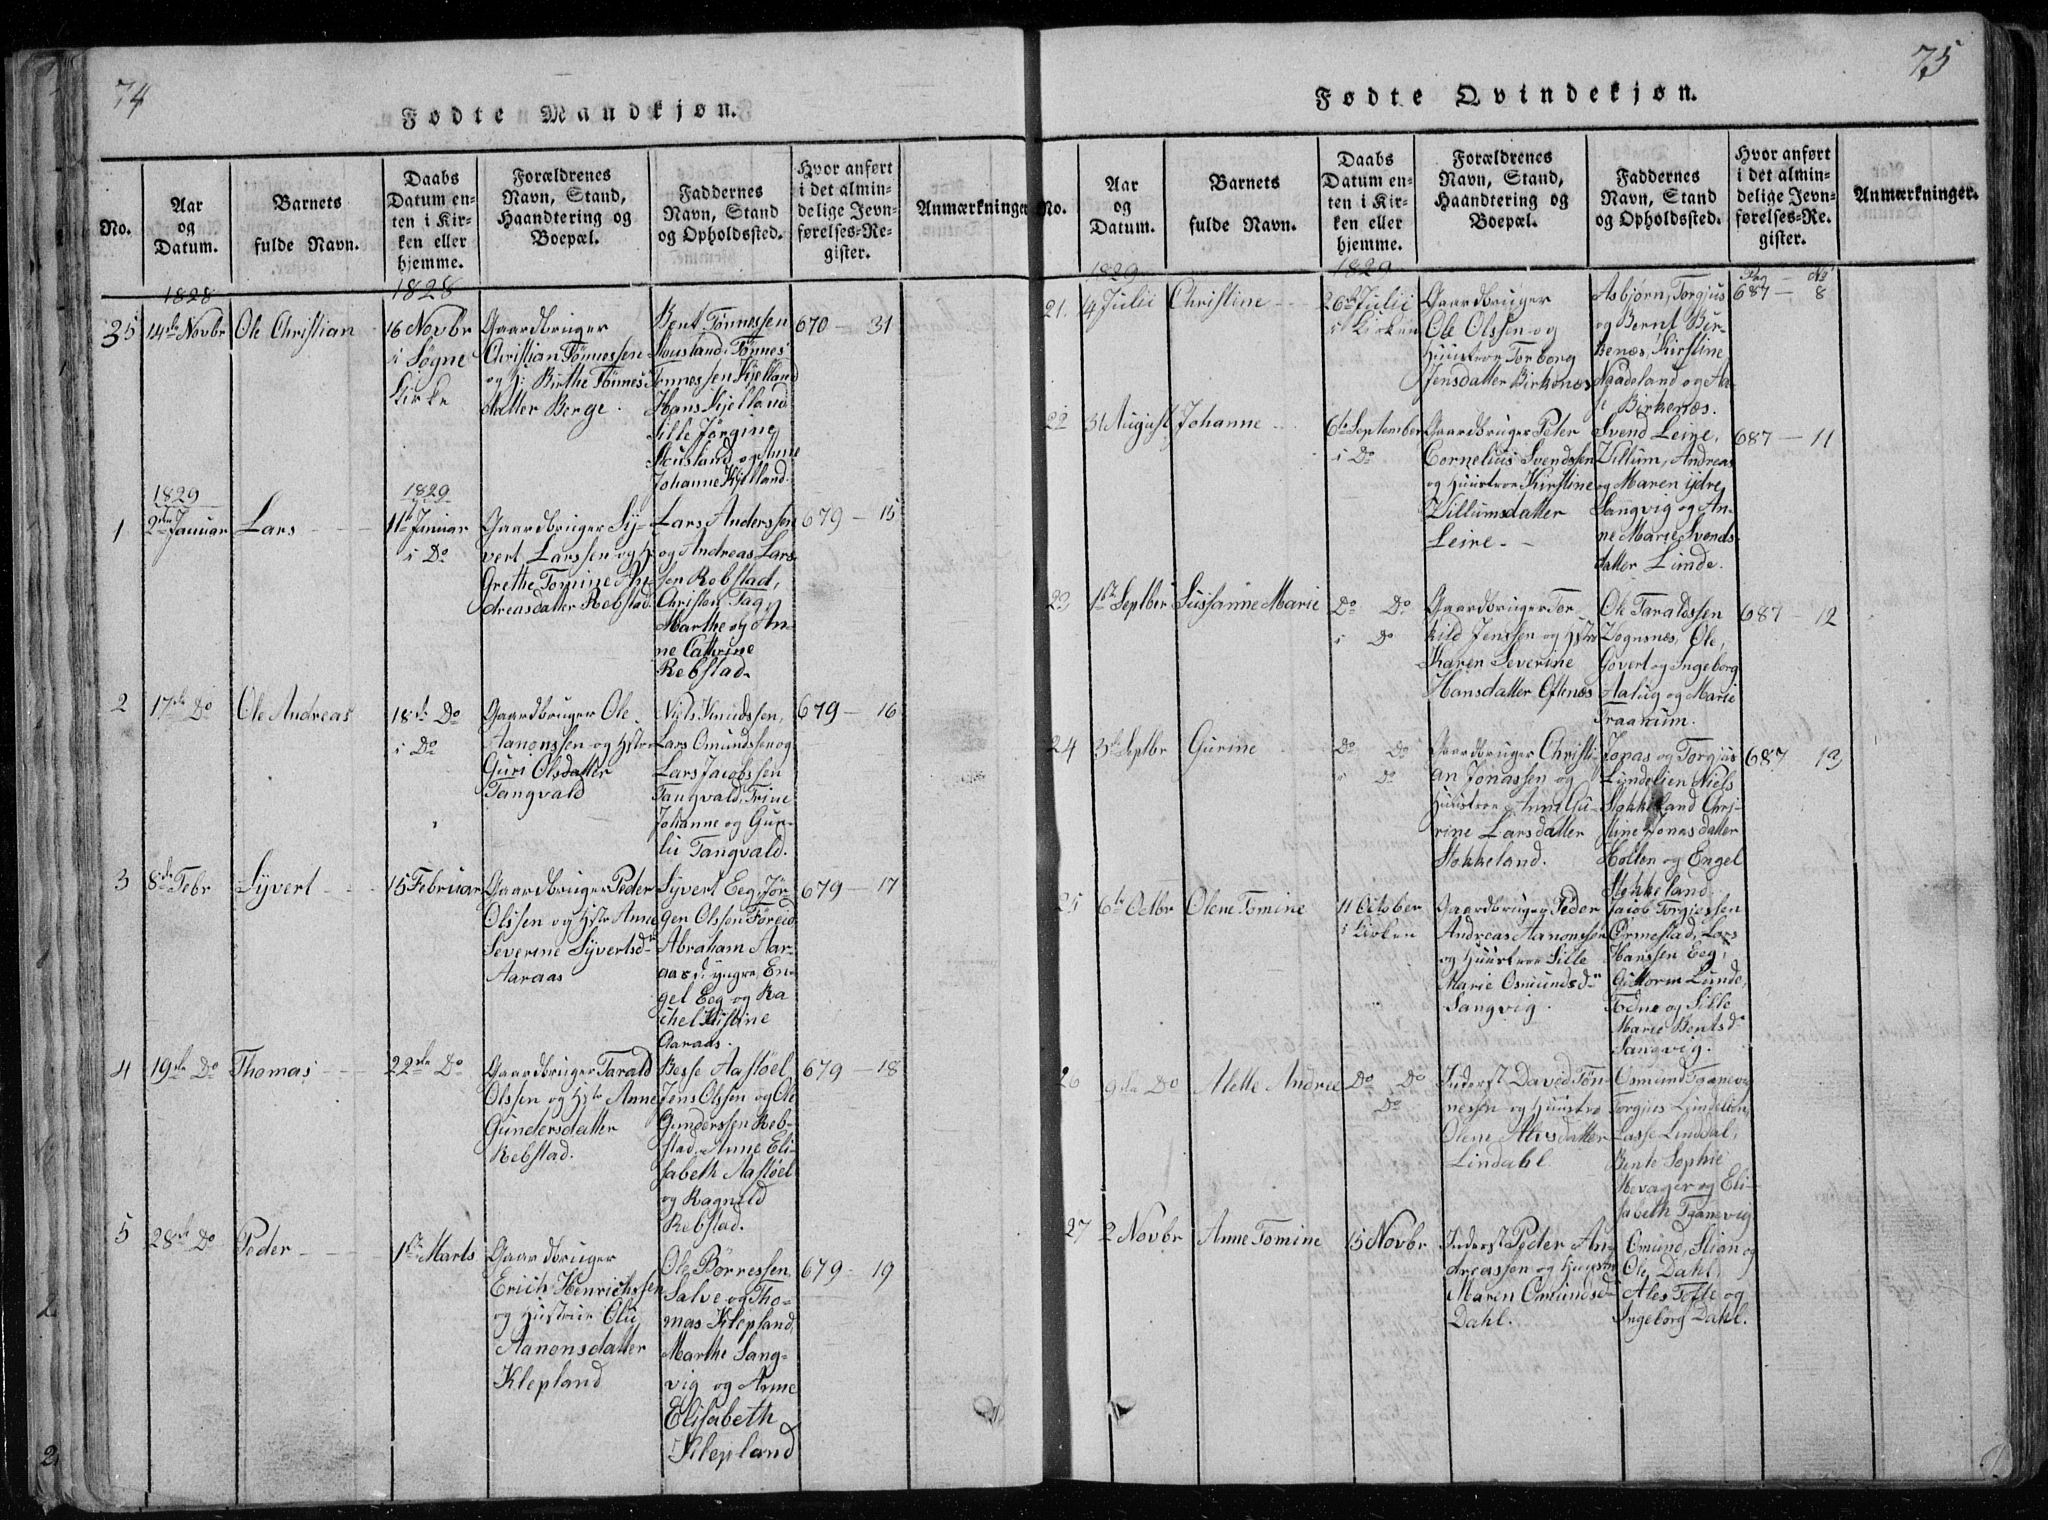 74
Fødte Mandkjøn.
No.
Aar
og
Datum.
Barnets
fulde Navn.
Daabs
Datum en-
ten i Kir-
ken eller
hjemme.
Forældrenes
Navn, Stand,
Haandtering og
Boepæl.
Faddernes
Navn, Stand
og Opholdssted.
Hvor anført
i det almin-
delige Jevn-
førelses-Re-
gister.
Anmærkninger
1828
35
14de Novbr
Ole Christian
1828
16 Novbr
i Søgne
Kirke
Gaardbruger
Christian Tønnessen
og H: Birthe Tønnes
datter Berge.
Bent Tønnessen
Stousland, Tønnes
Tønnessen Kjelland
Hans Kjelland
Sille Jørgine
Stousland og Anne
Johanne Kjelland.
670 - 31
1829
1
2den Januar
Lars
1829
11te Januar
i Do
Gaardbruger Sy-
vert Larssen og H:
Grethe Tomine An-
dreasdatter Rebstad.
Lars Anderssen
og Andreas Lars-
sen Rebstad,
Christen Tag,
Marthe og An-
ne Cathrine
Rebstad.
679 - 15
2
17de Do
Ole Andreas
18de Do
i Do
Gaardbruger Ole
Aanonssen og Hstr
Guri Olsdatter
Tangvald
Niels Knudssen,
Lars Omundssen og
Lars Jacobssen
Tangvald, Trine
Johanne og Gun-
ild Tangvald.
679 - 16
3
8de Febr
Syvert
15 Februar
Gaardbruger Peder
Olssen og Hstr Anne
Severine Syvertsd.
Aaraas
Syvert Eeg, Jør
gen Olssen Føreid
Abraham Aar-
aas d: yngre, En-
gel Eeg og Ra
chel Kistine
Aaraas.
679 - 17
4
19de Do
Thomas
22de Do
Gaardbruger Tarald
Olssen og Hstr Anne
Gundersdatter
Rebstad.
Besse Aastøel
Jens Olssen og Ole
Gunderssen Reb-
stad, Anne Eli-
sabeth Aastøel
og Ragnild
Rebstad.
679 - 18
5
28de Do
Peder
1ste Marts
Gaardbruger
Erich Henrichssen
og Hustrue Olu
Aanonsdatter
Klepland
Ole Børressen,
Salve og Tho-
mas Klepland,
Marthe Sang-
vig og Anne
Elisabeth
Klepland
679 - 19
75
Fødte Qvindekjøn.
No.
Aar
og
Datum.
Barnets
fulde Navn.
Daabs
Datum en-
ten i Kir-
ken eller
hjemme.
Forældrenes
Navn, Stand,
Haandtering og
Boepæl.
Faddernes
Navn, Stand
og Opholdssted.
Hvor anført
i det almin-
delige Jevn-
førelses-Re-
gister.
Anmærkninger.
1829
21.
4 Julii
Christine
1829
26de Julii
i Kirken
Gaardbruger
Ole Olssen og
Huustroe Torborg
Jensdatter Birkenæs
Asbjørn, Torgjus
og Bernt Bir-
kenæs, Kirstine
Naadeland og Aa-
se Birkenæs.
Pag - No
687 - 8
22
31 August
Johanne
6te September
i Do
Gaardbruger Peter
Cornelius Svendssen
og Huustroe Kirstine
Villumsdatter
Leire.
Svend Leire,
Villum, Andreas
og Maren ydre
Langvig og An-
ne Marie Svends-
datter Lunde.
687 - 11
23
1ste Septber
Susanne Marie
Do Do
i Do
Gaardbruger Tor-
kild Jenssen og Hstro
Karen Severine
Hansdatter Oftenæs
Ole Taraldssen
Vognsnes, Ole,
Govert og Ingeborg
Aalug og Marie
Traanum.
687 - 12
24
3de Septbr
Gurine
Do Do
i Do
Gaardbruger Christi-
an Jonassen og
Huustroe Anne Gu-
rine Larsdatter
Stokkeland.
Jonas og Torgjus
Lindelien Niels
Stokkeland Chri-
stine Jonasdatter
Hollen og Engel
Stokkeland.
687 - 13
25
6te Octbr
Olene Tomine
11 October
i Kirken
Gaardbruger Peder
Andreas Aanonssen
og Huustroe Sille
Marie Osmundsd.
Sangvig.
Jacob Torgiessen
Ormestad, Lars
Hanssen Eeg,
Guttorm Lunde,
Tone og Sille
Marie Bentsd.
Sangvig.
26
9de Do
Alette Andree
Do Do
Do
Inderst David Tøn-
nessen og Huustro
Olene Alvsdatter
Lindahl
Osmund Tganevig
Torgius Lindelien
Lasse Linddal,
Bente Sophie
Hevager og Eli-
sabeth Tganevig
27
2 Novbr
Anne Tomine
15 Novbr
Inderst Peder An-
dreassen og Huustr
Maren Omundsd.
Dahl.
Omund, Stian og
Ole Dahl,
Ales Tofte og
Ingeborg Dahl.